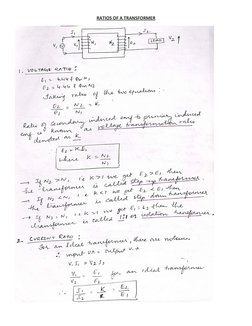 RATIOS OF A TRANSFORMER
I₁ I₂
V₁ E₁ N₁ N₂ E₂ LOAD V₂
1. VOLTAGE RATIO :
E₁ = 4.44 f Φm N₁
E₂ = 4.44 f Φm N₂
Taking ratio of the two equation :-
E₂/E₁ = N₂/N₁ = K
Ratio of Secondary induced emf to primary induced
emf is known as voltage transformation ratio
denoted as K
E₂ = K E₁
where K = N₂/N₁
→ If N₂ > N₁ i.e K > 1 we get E₂ > E₁ then
the transformer is called step up transformer.
→ If N₂ < N₁ i.e K < 1 we get E₂ < E₁ then
the transformer is called step down transformer
→ If N₂ = N₁ i.e K = 1 we get E₁ = E₂ then the
transformer is called 1:1 or isolation transformer.
2. CURRENT RATIO :
For an Ideal transformer, there are no losses
∴ input VA = output VA
V₁ I₁ = V₂ I₂
for an ideal transformer